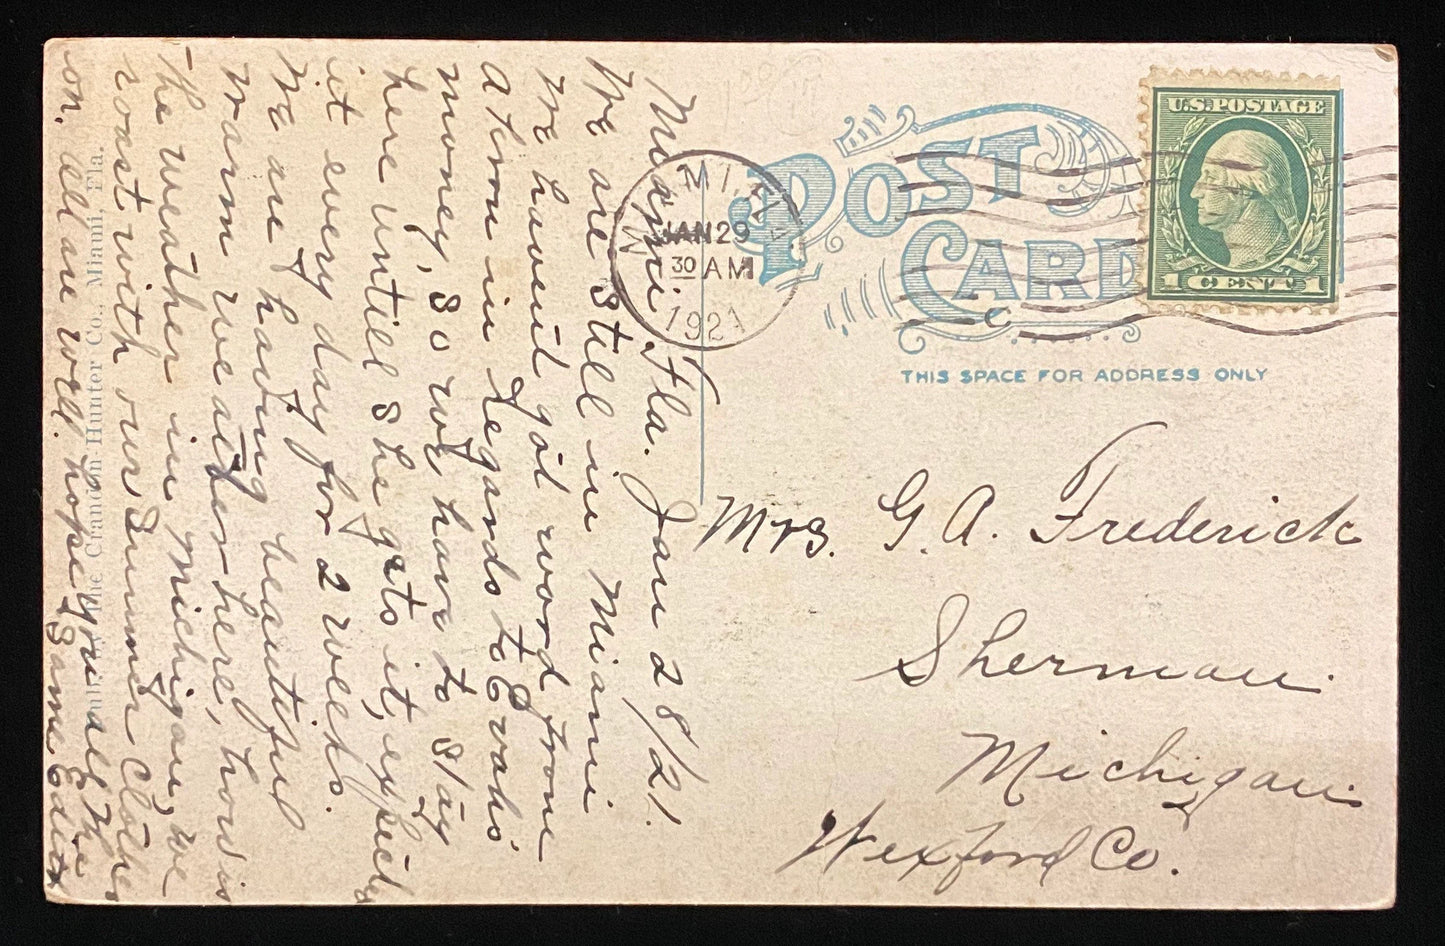 Miami, Fla. Jan 28/21.
We are still in Miami
we havent got word from
Atron in regards to Evahs
money, so we have to stay
here untill she gets it, expects
it every day for 2 weeks.
We are having beautiful
warm weather here, how is
the weather in Michigan, we
roast with our Summer Clothes
on. all are well. hope you all the
Same Edith
Pub. by The Crandon Hunter Co., Miami, Fla.
POST
CARD
THIS SPACE FOR ADDRESS ONLY
MIAMI, FLA.
JAN 29
30 AM
1921
U.S. POSTAGE
1 CENT 1
Mrs. G. A. Frederick
Sherman
Michigan
Wexford Co.